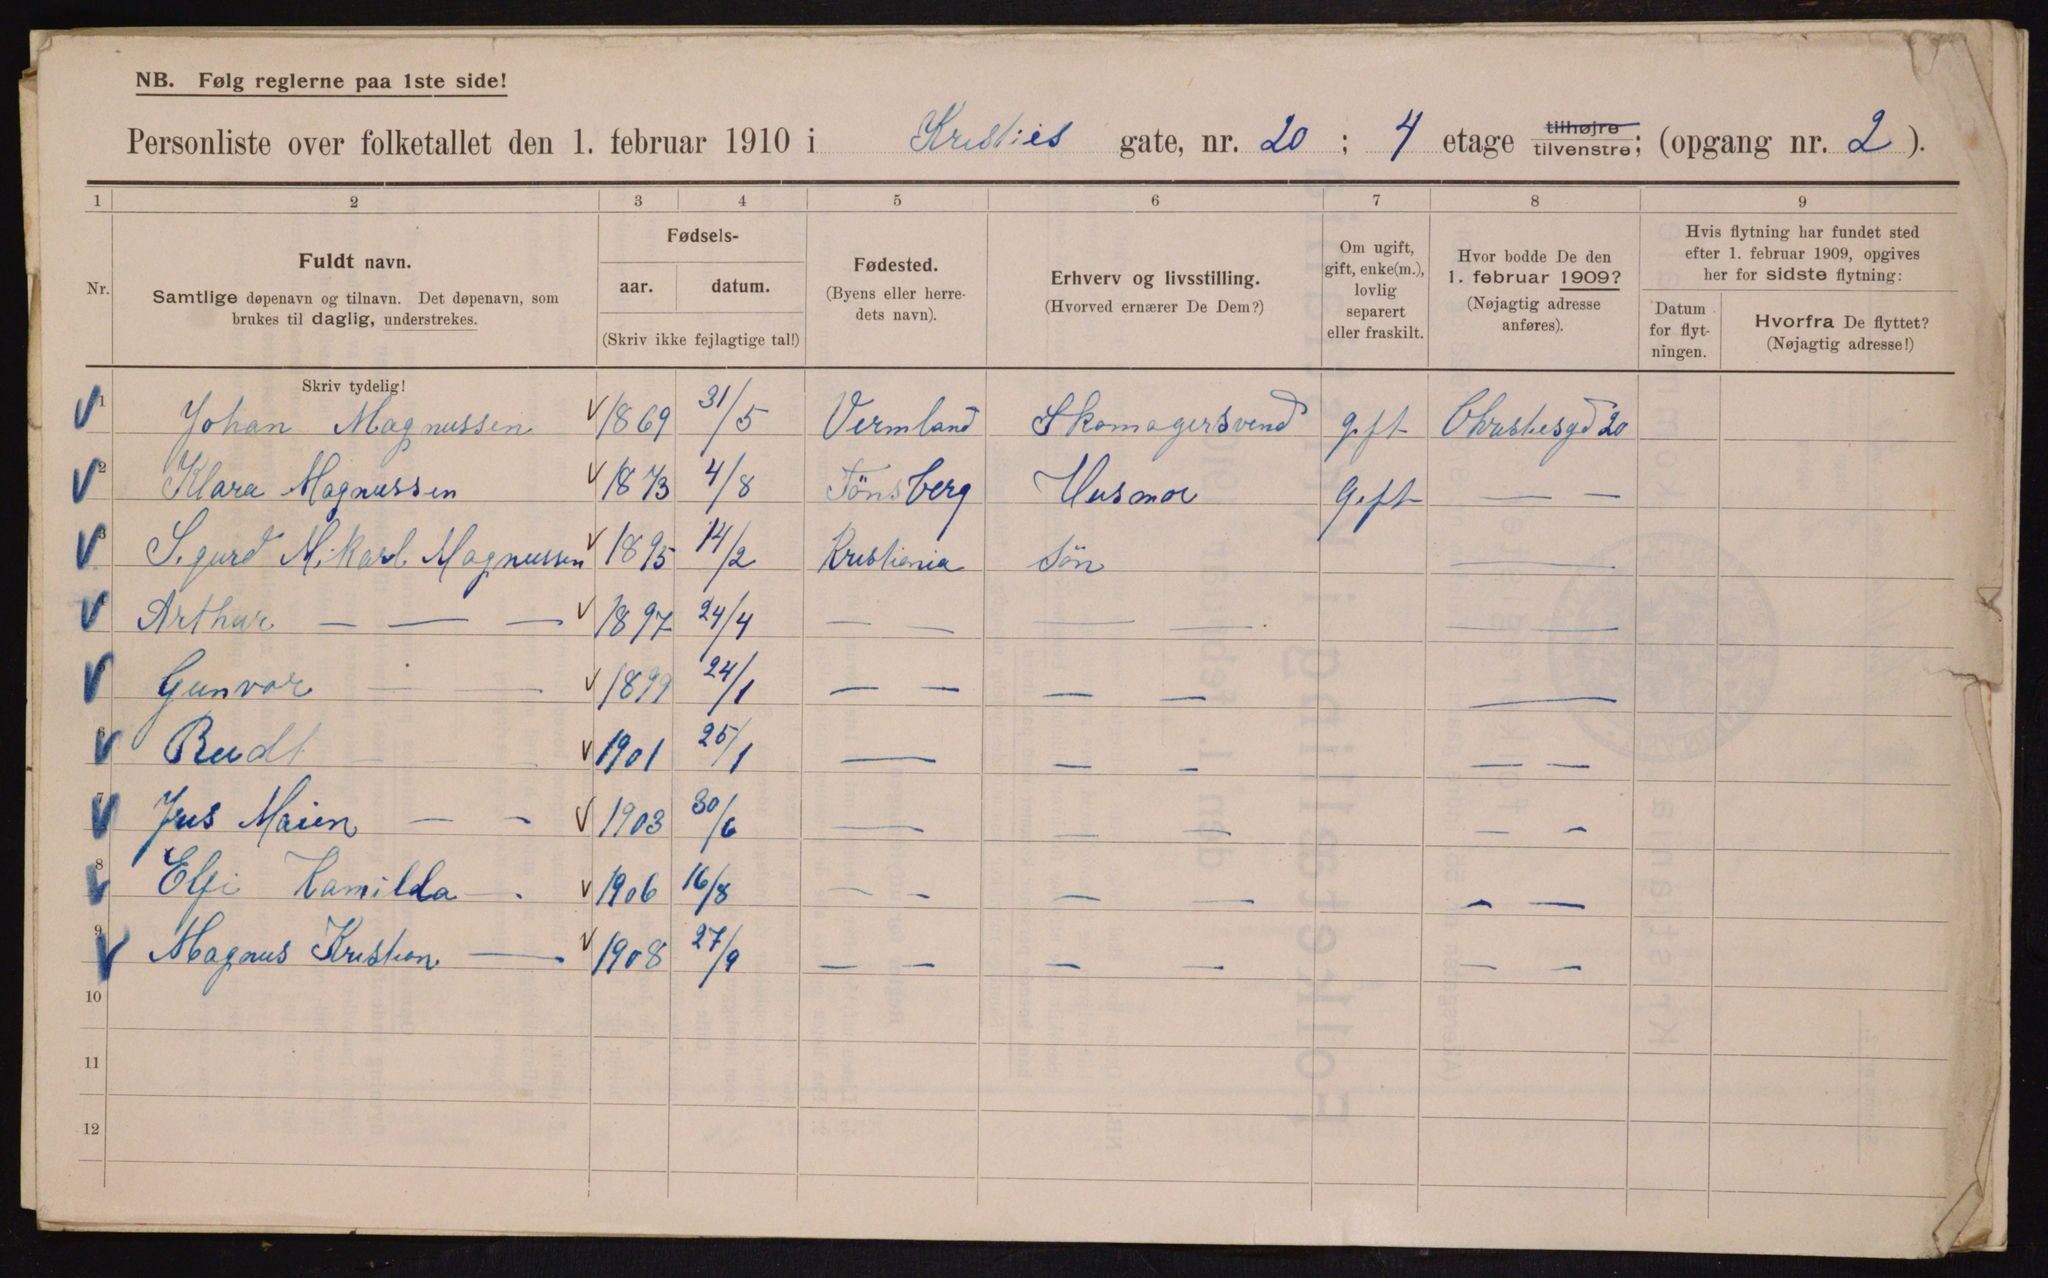 NB. Følg reglerne paa 1ste side!
Personliste over folketallet den 1. februar 1910 i Kristies gate, nr. 20 ; 4 etage tilhøjre tilvenstre; (opgang nr. 2 ).
1 2 3 4 5 6 7 8 9
Nr.
Fuldt navn.
Samtlige døpenavn og tilnavn. Det døpenavn, som
brukes til daglig, understrekes.
Skriv tydelig!
Fødsels-
aar. datum.
(Skriv ikke fejlagtige tal!)
Fødested.
(Byens eller herre-
dets navn).
Erhverv og livsstilling.
(Hvorved ernærer De Dem?)
Om ugift,
gift, enke(m.),
lovlig
separert
eller fraskilt.
Hvor bodde De den
1. februar 1909?
(Nøjagtig adresse
anføres).
Hvis flytning har fundet sted
efter 1. februar 1909, opgives
her for sidste flytning:
Datum
for flyt-
ningen.
Hvorfra De flyttet?
(Nøjagtig adresse!)
1 Johan Magnussen 1869 31/5 Vermland Skomagersvend gift Christiesgd 20
2 Klara Magnussen 1873 4/8 Tönsberg Husmor Gift — —
3 Sigurd Mikarl Magnussen 1895 14/2 Kristiania Sön —
Arthur — — — 1897 24/4 — — — — — —
Gunvor — — 1899 24/1 — — — — —
6 — — — 1901 25/1 — — — — —
7 Maien — — 1903 30/6 — — — — —
8 Elfi Kamilda — 1906 16/8 — — — — — —
9 Magnus Kristian — 1908 27/9 — — — — — —
10
11
12